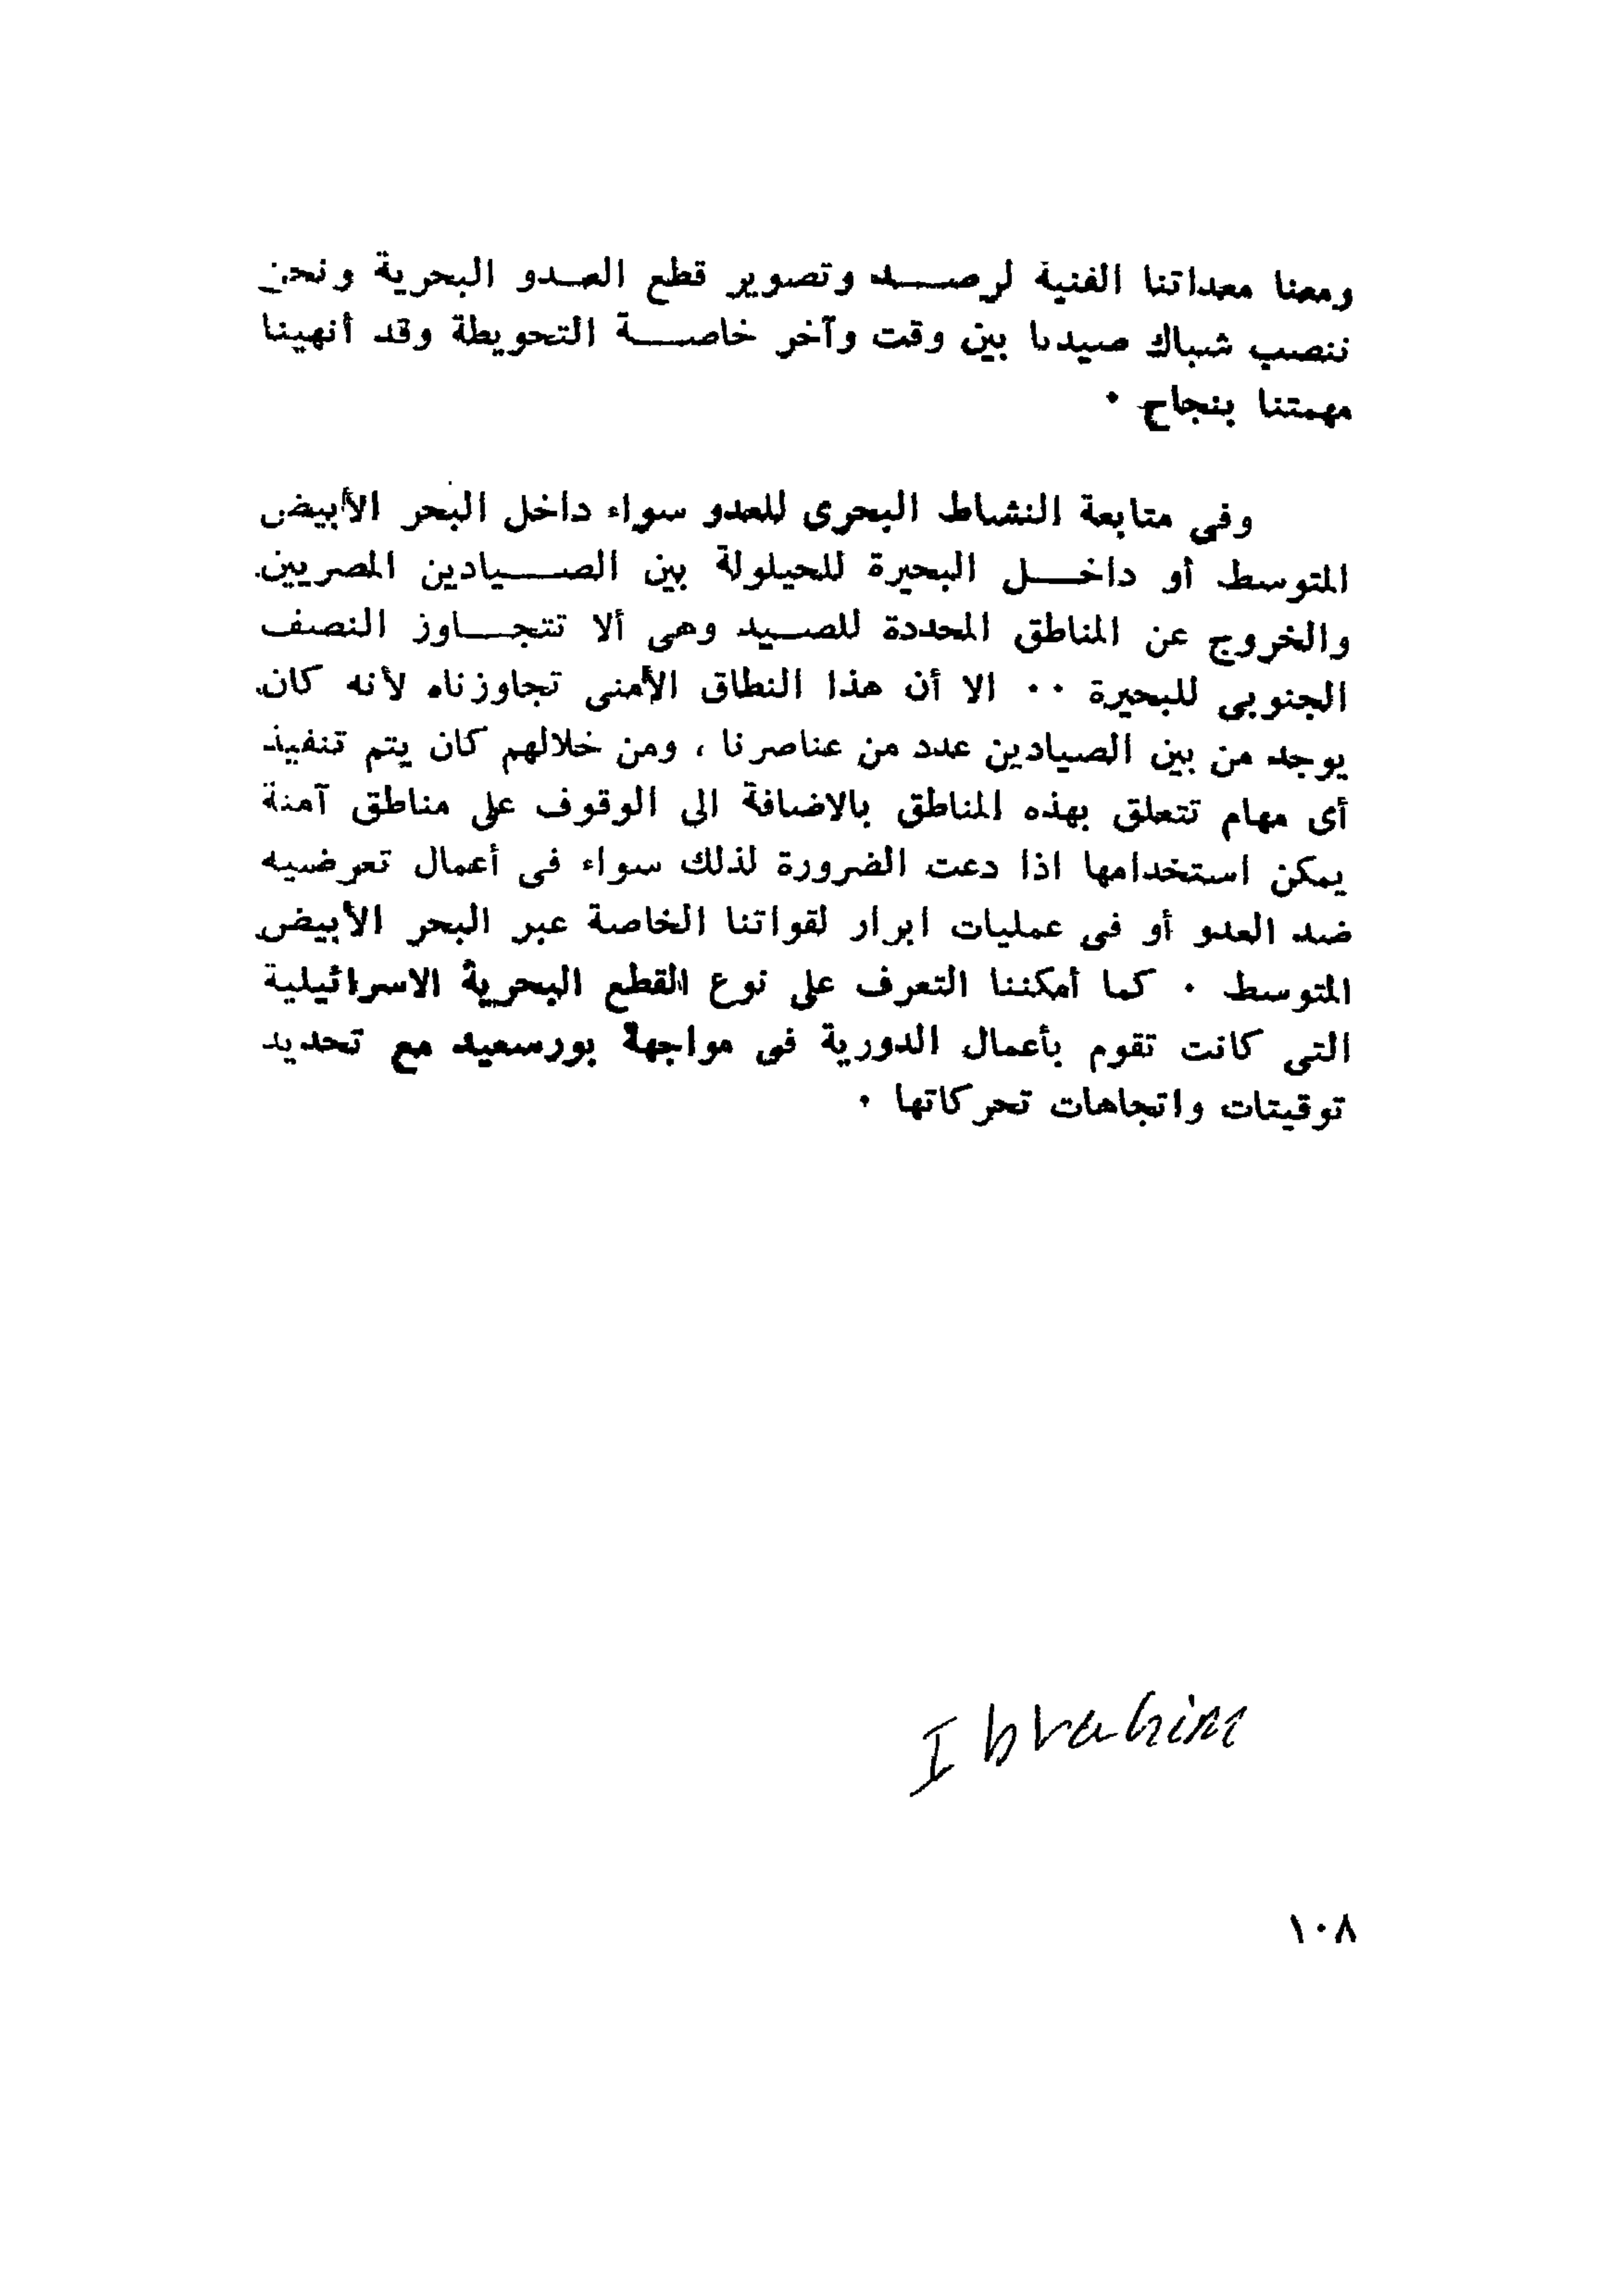 ومعنا معداتنا الفنية لرصد وتصوير قطع العدو البحرية ونحن
ننصب شباك صيدنا بين وقت وآخر خاصة التحويطة وقد أنهينا
مهمتنا بنجاح ٠
وفى متابعة النشاط البحرى للعدو سواء داخل البحر الأبيض
المتوسط أو داخل البحيرة للحيلولة بين الصيادين المصريين
والخروج عن المناطق المحددة للصيد وهى ألا تتجاوز النصف
الجنوبى للبحيرة ٠٠ الا أن هذا النطاق الأمنى تجاوزناه لأنه كان
يوجد من بين الصيادين عدد من عناصرنا ، ومن خلالهم كان يتم تنفيذ
أى مهام تتعلق بهذه المناطق بالاضافة الى الوقوف على مناطق آمنة
يمكن استخدامها اذا دعت الضرورة لذلك سواء فى أعمال تعرضيه
ضد العدو أو فى عمليات ابرار لقواتنا الخاصة عبر البحر الأبيض
المتوسط ٠ كما أمكننا التعرف على نوع القطع البحرية الاسرائيلية
التى كانت تقوم بأعمال الدورية فى مواجهة بورسعيد مع تحديد
توقيتات واتجاهات تحركاتها ٠
Ibrahim
١٠٨